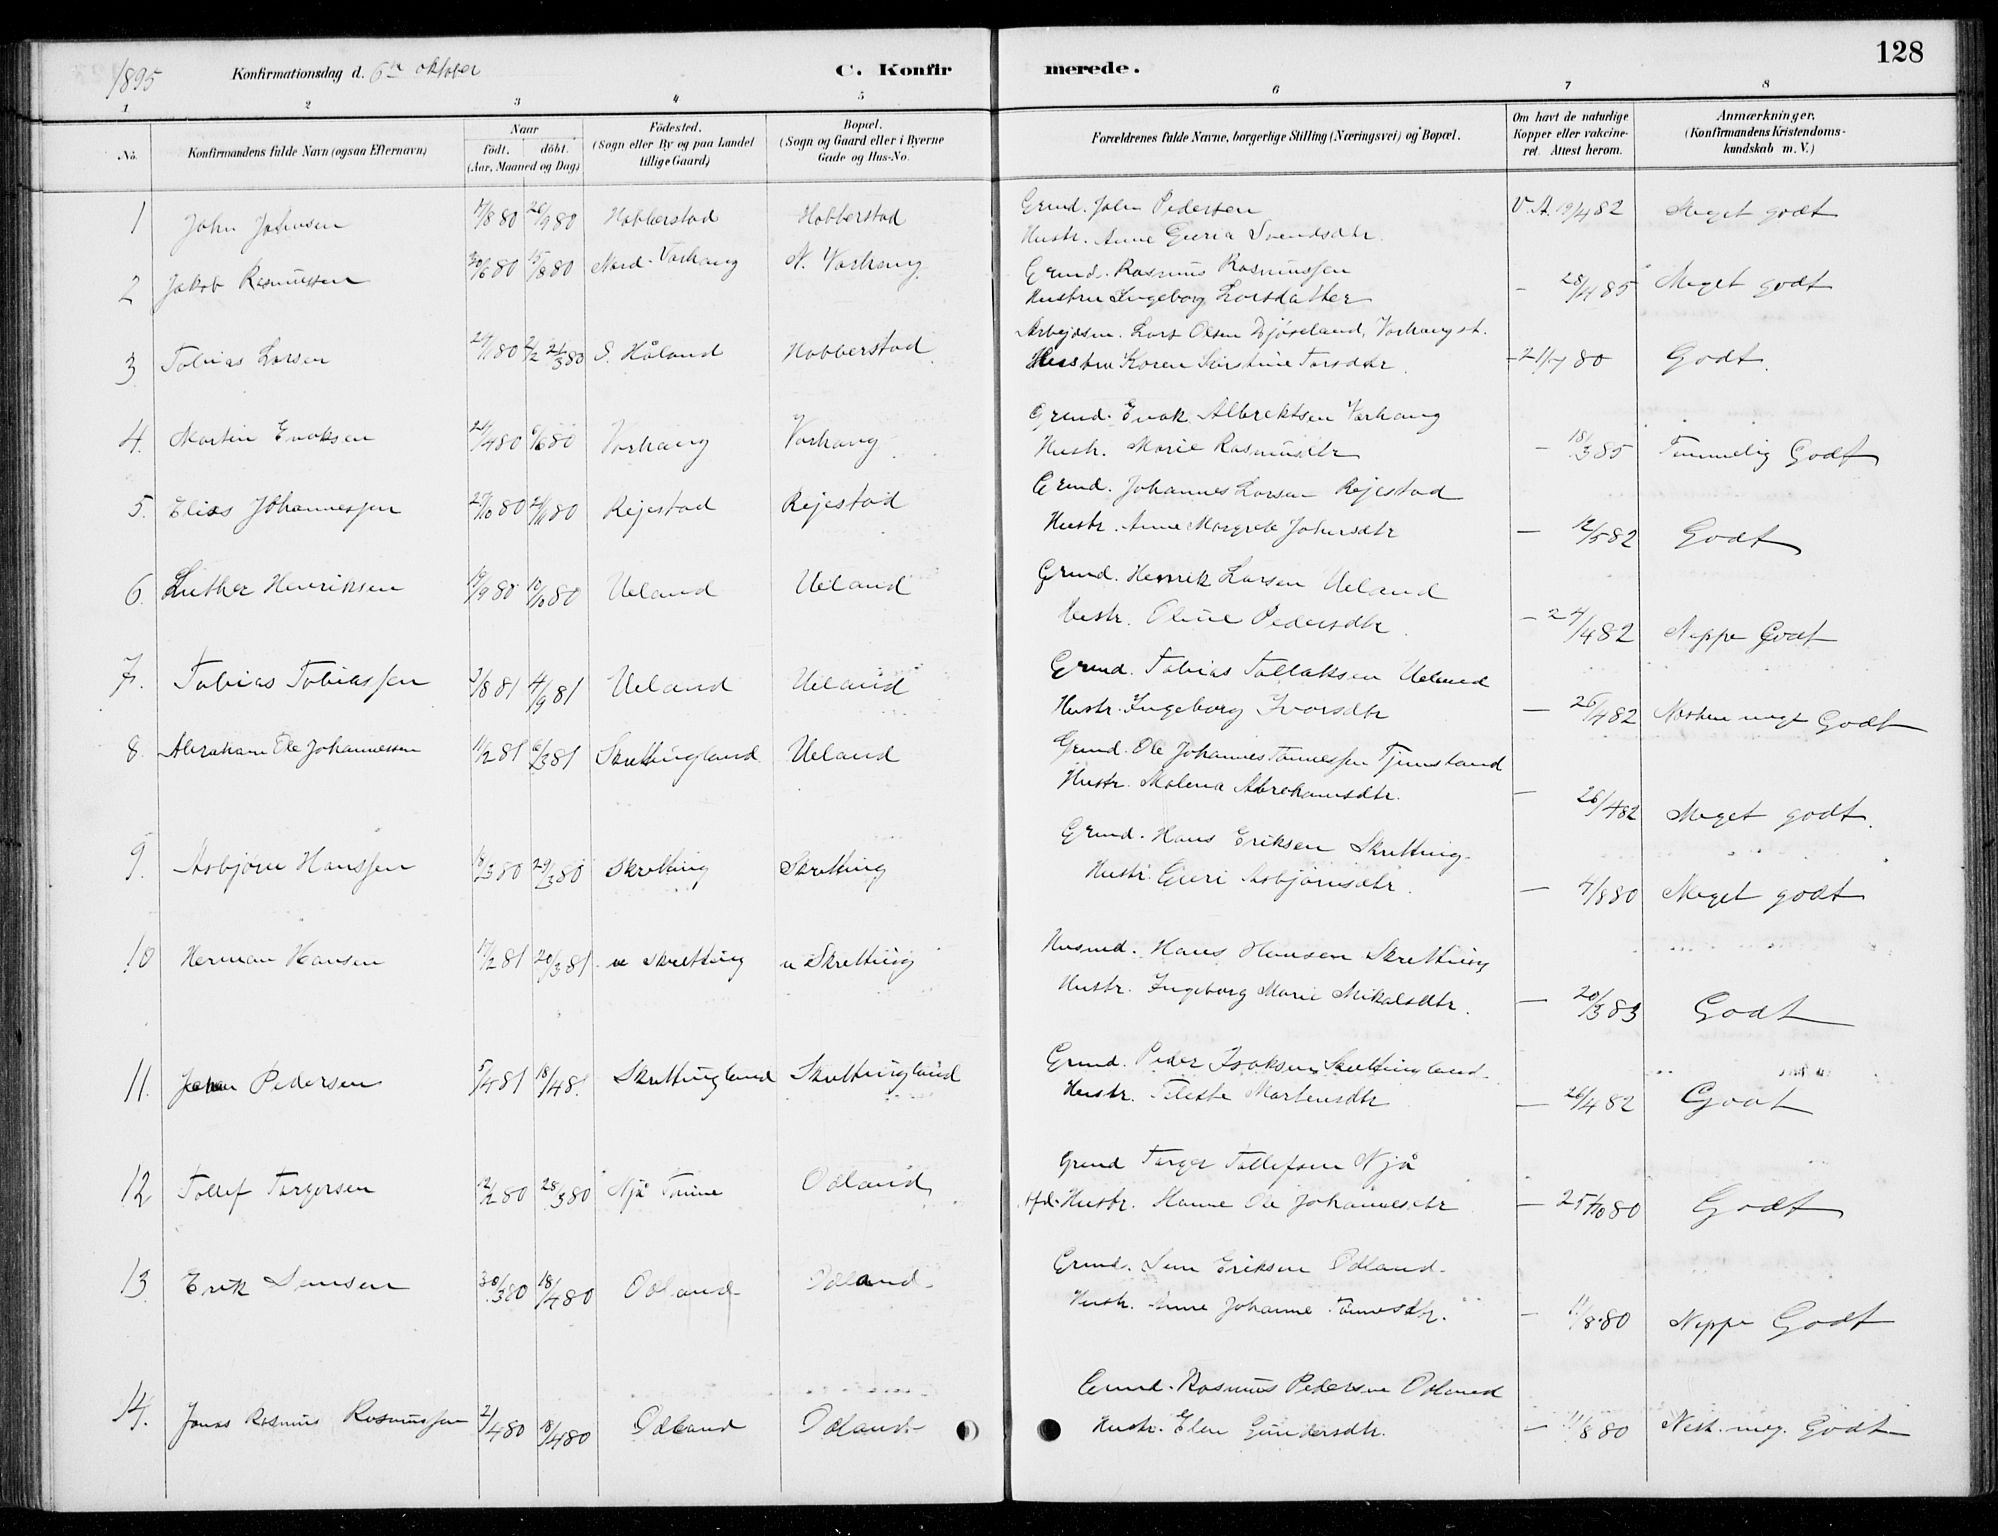 128
1895 Konfirmationsdag d. 6te oktober C. Konfirmerede.
1 2 3 4 5 6 7 8
No. Konfirmandens fulde Navn (ogsaa Efternavn) Naar født. døbt. (Aar, Maaned og Dag) Fødested. (Sogn eller By og paa Landet tillige Gaard) Bopæl. (Sogn og Gaard eller i Byerne Gade og Hus-No. Forældrenes fulde Navne, borgerlige Stilling (Næringsvei) og Bopæl. Om havt de naturlige Kopper eller vakcineret. Attest herom. Anmærkninger, (Konfirmandens Kristendomskundskab m. V.)
1 John Johnsen 17/8 80 26/9 80 Hobberstad Hobberstad Grmd. John Pedersen V. A. 19/4 82 Meget godt
Hustr. Anne Guria Svendsdtr.
2 Jakob Rasmussen 30/6 80 15/8 80 Nord-Varhaug N. Varhaug Grmd. Rasmus Rasmussen
Hustru Ingeborg Larsdatter - 28/4 85 Meget godt
3 Tobias Larsen 80 S. Håland Hobberstad Arbejdsm. Lars Olsen Varhaug st.
Hustru Karen - 21/7 80 Godt.
4. Martin Enoksen 21/4 80 6/6 80 Varhaug Varhaug Grmd. Enok Albrektsen Varhaug
Hustr. Marie Rasmusdtr - 18/3 85 Temmelig Godt
5. Elias Johannessen 27/10 80 21/11 80 Rejestad Rejestad Grmd. Johannes Larsen Rejestad
Hustr. Anne Margrete Johnsdtr - 12/5 82 Godt
6. Luther Henriksen 19/9 80 10/10 80 Ueland Ueland Grmd. Henrik Larsen Ueland
Hustr. Oline Pedersdtr. - 24/4 82 Neppe Godt
7. Tobias Tobiassen 3/8 81 4/9 81 Ueland Ueland Grmd. Tobias Tollaksen Ueland
Hustr. Ingeborg Ivarsdtr - 26/4 82 Næsten meget Godt
8. Abraham Ole Johannessen 11/2 81 6/3 81 Skrettingland Ueland Grmd. Ole Johannes Tønnessen Tjemsland
Hustr. Malena Abrahamsdtr. - 26/4 82 Meget godt.
9. Asbjørn Hanssen 18/3 80 29/3 80 Skretting Skretting Grmd. Hans Eriksen Skretting.
Hustr. Guri Asbjørnsdtr. - 4/8 80 Meget godt
10 Herman Hansen 17/2 81 20/3 81 n Skretting n Skretting Husmd. Hans Hansen Skretting
Hustr. Ingeborg Marie Mikalsdtr. - 20/3 83 Godt
11. Johan Pedersen 5/4 81 18/4 81. Skrettingland Skrettingland Grmd. Peder Isaksen Skrettingland.
Hustr. Martensdtr - 26/4 82 Godt
12 Tollef Torgersen 12/2 80 28/3 80 Njå Odland Grmd Torger Tollefsen Njå
Afd. Hustr. Hanne Ole Johannesdtr - 25/10 80 Godt
13 Erik Semsen 30/3 80 18/4 80 Odland Odland Grmd. Sem Eriksen Odland.
Hustr. Anne Johanne Tønnesdtr. - 11/8 80 Neppe Godt
14. Jonas Rasmus Rasmussen 2/4 80 18/4 80 Odland Odland Grmd. Rasmus Pedersen Odland
Hustr. Elen Gundersdtr. - 11/8 80 Nest. meg. Godt